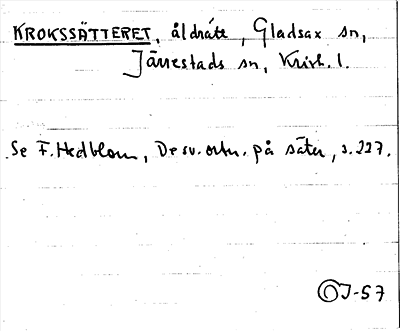 KROKSSÄTTERET, åldnáte, Gladsax sn,
Järrestads sn, Krist. l.
Se F. Hedblom, De sv. ortn. på säter, s. 227.
OJ-57